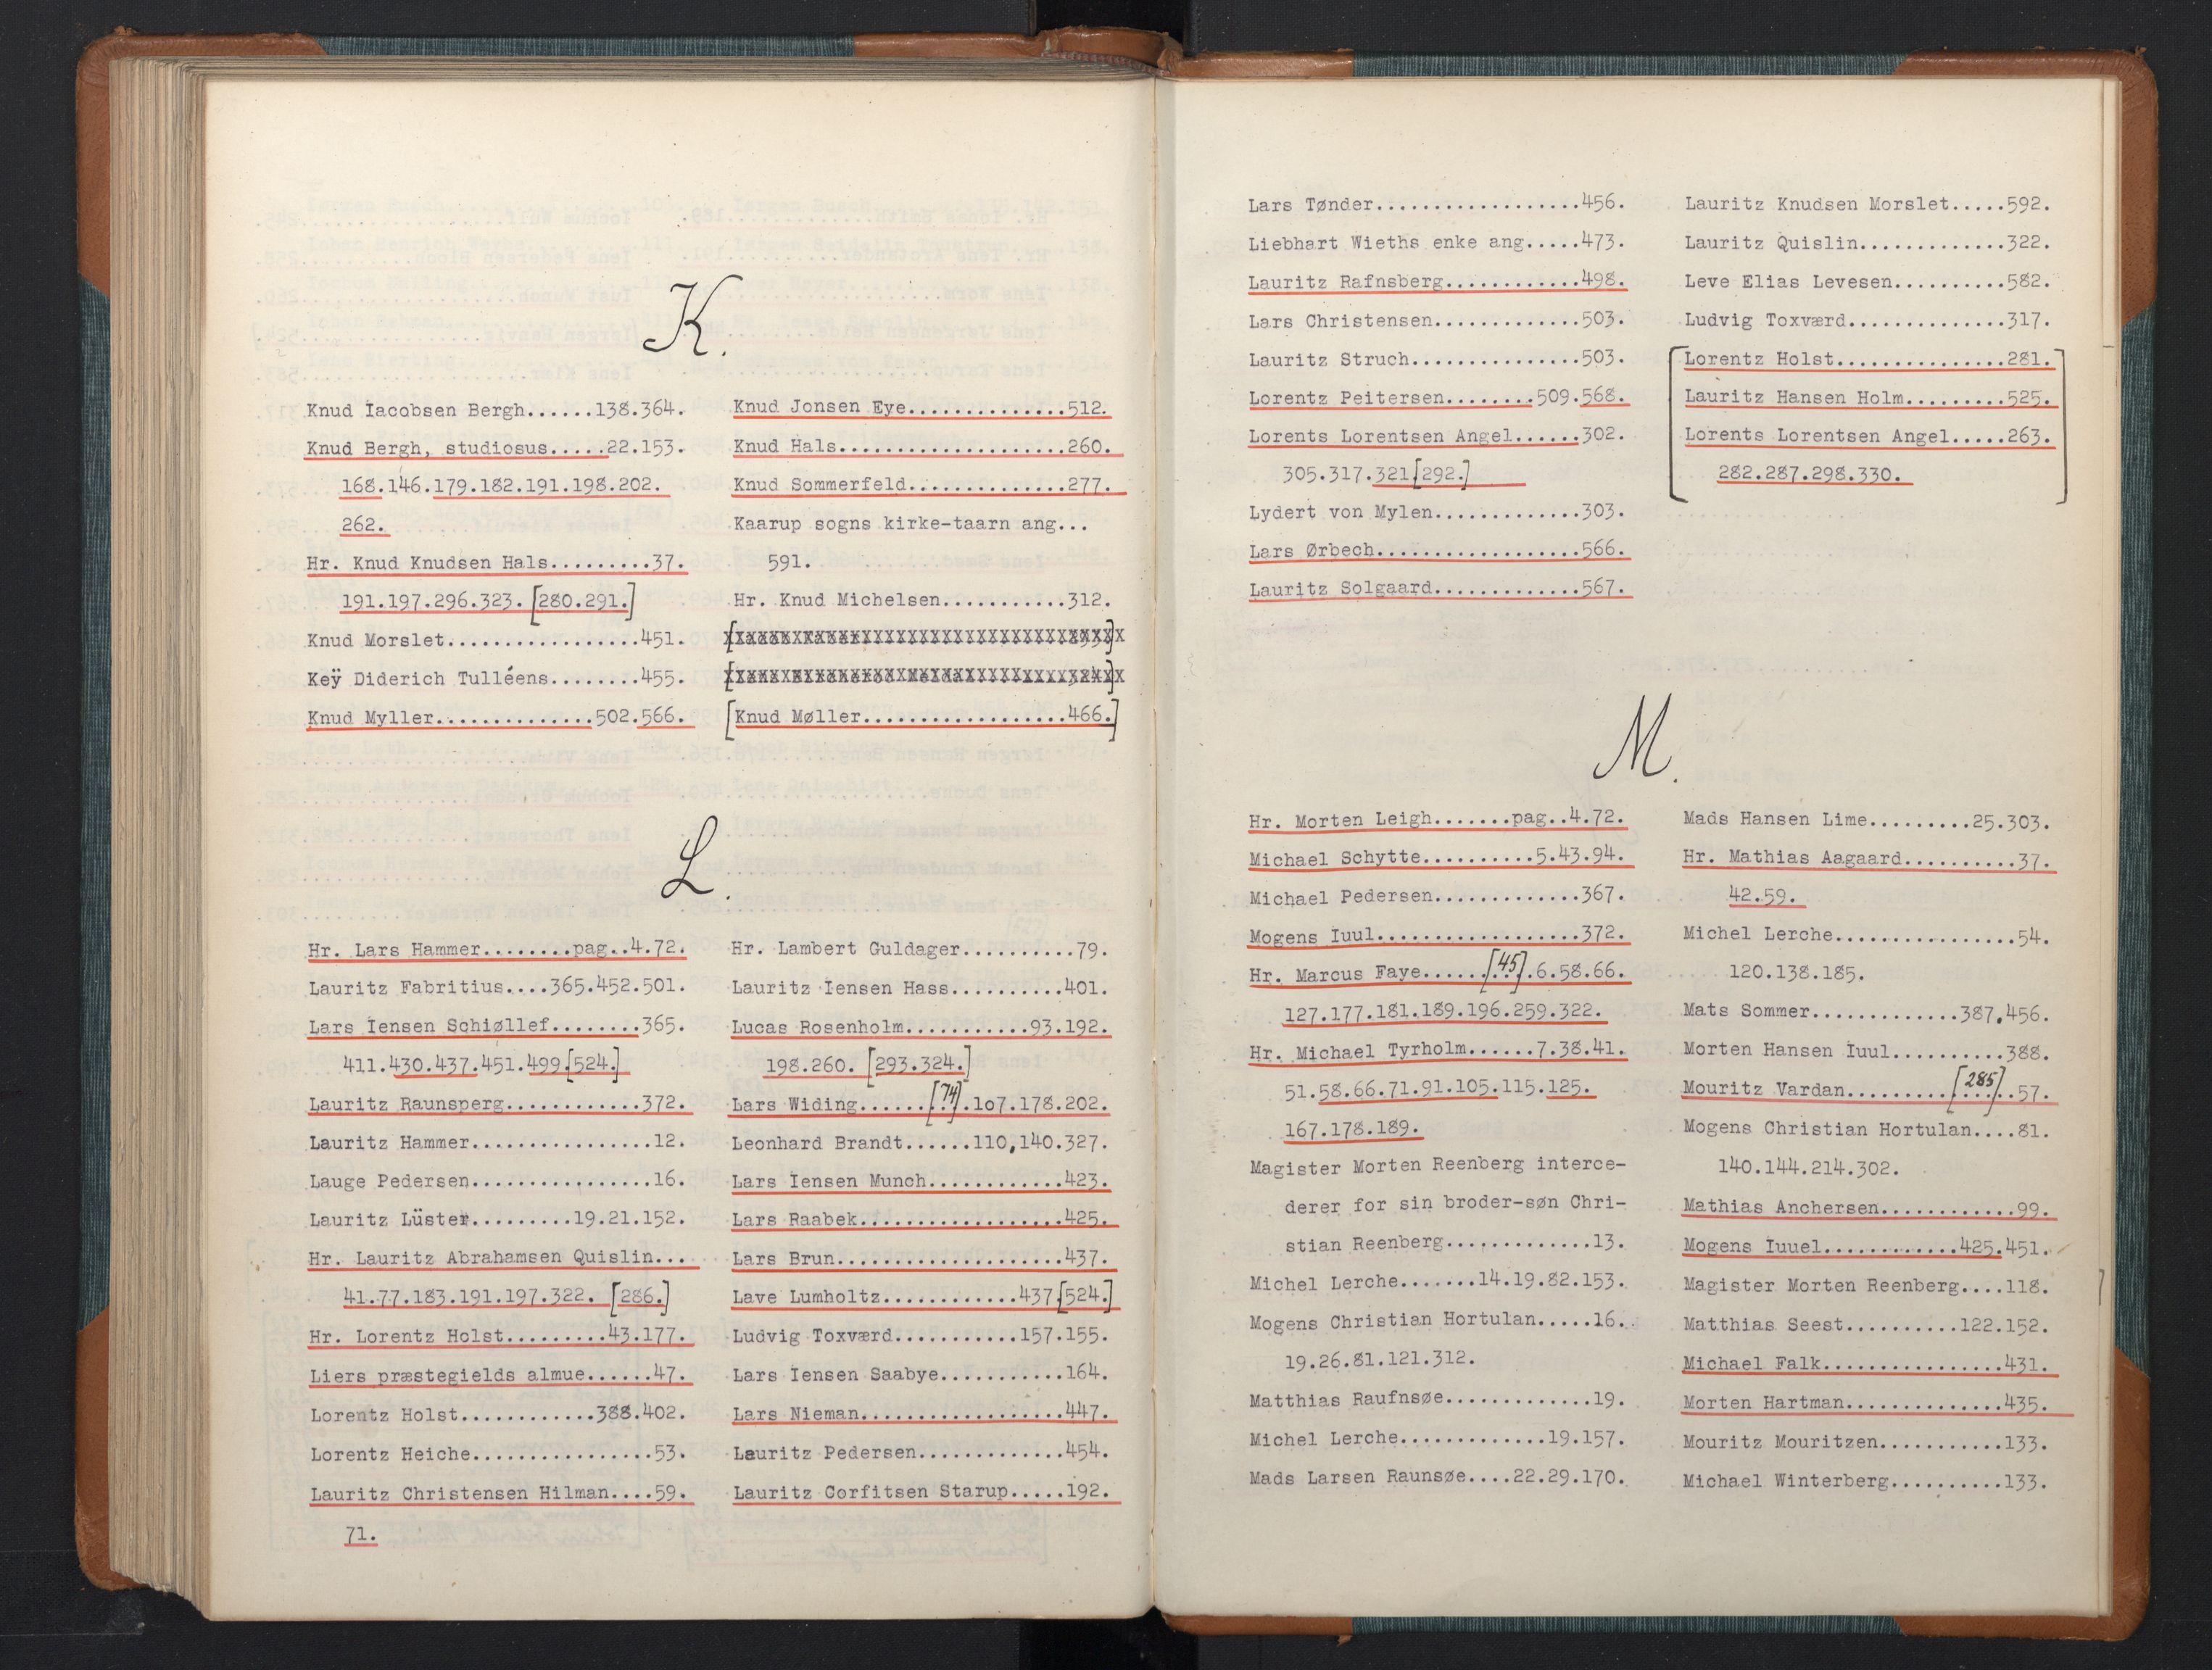 K.
Knud Iacobsen Bergh......138.364.
Knud Bergh, studiosus.....22.153.
168.146.179.182.191.198.202.
262.
Hr. Knud Knudsen Hals.........37.
191.197.296.323. [280.291.]
Knud Morslet.................451.
Keÿ Diderich Tulléens........455.
Knud Myller..............502.566.
Knud Jonsen Eye..............512.
Knud Hals....................260.
Knud Sommerfeld..............277.
Kaarup sogns kirke-taarn ang...
591.
Hr. Knud Michelsen...........312.
[Knud Møller..................466.]
L.
Hr. Lars Hammer........pag..4.72.
Lauritz Fabritius....365.452.501.
Lars Iensen Schiøllef........365.
411.430.437.451.499.[524.]
Lauritz Raunsperg............372.
Lauritz Hammer................12.
Lauge Pedersen................16.
Lauritz Lüster.........19.21.152.
Hr. Lauritz Abrahamsen Quislin...
41.77.183.191.197.322. [286.]
Hr. Lorentz Holst.........43.177.
Liers præstegields almue......47.
Lorentz Holst............388.402.
Lorentz Heiche................53.
Lauritz Christensen Hilman....59.
71.
Hr. Lambert Guldager..........79.
Lauritz Iensen Hass..........401.
Lucas Rosenholm...........93.192.
198.260. [293.324.]
Lars Widing......[74].107.178.202.
Leonhard Brandt......110,140.327.
Lars Iensen Munch............423.
Lars Raabek..................425.
Lars Brun....................437.
Lave Lumholtz............437.[524.]
Ludvig Toxværd...........157.155.
Lars Iensen Saabye...........164.
Lars Nieman..................447.
Lauritz Pedersen.............454.
Lauritz Corfitsen Starup.....192.
Lars Tønder..................456.
Liebhart Wieths enke ang.....473.
Lauritz Rafnsberg............498.
Lars Christensen.............503.
Lauritz Struch...............503.
Lorentz Peitersen........509.568.
Lorents Lorentsen Angel......302.
305.317.321.[292.]
Lydert von Mylen.............303.
Lars Ørbech..................566.
Lauritz Solgaard.............567.
Lauritz Knudsen Morslet.....592.
Lauritz Quislin.............322.
Leve Elias Levesen..........582.
Ludvig Toxværd..............317.
[Lorentz Holst...............281.
Lauritz Hansen Holm.........525.
Lorents Lorentsen Angel.....263.
282.287.298.330.]
M.
Hr. Morten Leigh.......pag..4.72.
Michael Schytte..........5.43.94.
Michael Pedersen.............367.
Mogens Iuul..................372.
Hr. Marcus Faye......[45].6.58.66.
127.177.181.189.196.259.322.
Hr. Michael Tyrholm......7.38.41.
51.58.66.71.91.105.115.125.
167.178.189.
Magister Morten Reenberg interce-
derer for sin broder-søn Chri-
stian Reenberg.............13.
Michel Lerche.......14.19.82.153.
Mogens Christian Hortulan.....16.
19.26.81.121.312.
Matthias Raufnsøe.............19.
Michel Lerche.............19.157.
Mads Larsen Raunsøe....22.29.170.
Mads Hansen Lime.........25.303.
Hr. Mathias Aagaard..........37.
42.59.
Michel Lerche................54.
120.138.185.
Mats Sommer.............387,456.
Morten Hansen Iuul..........388.
Mouritz Vardan.........[285]..57.
Mogens Christian Hortulan....81.
140.144.214.302.
Mathias Anchersen............99.
Mogens Iuuel............425.451.
Magister Morten Reenberg....118.
Matthias Seest..........122.152.
Michael Falk................431.
Morten Hartman..............435.
Mouritz Mouritzen...........133.
Michael Winterberg..........133.